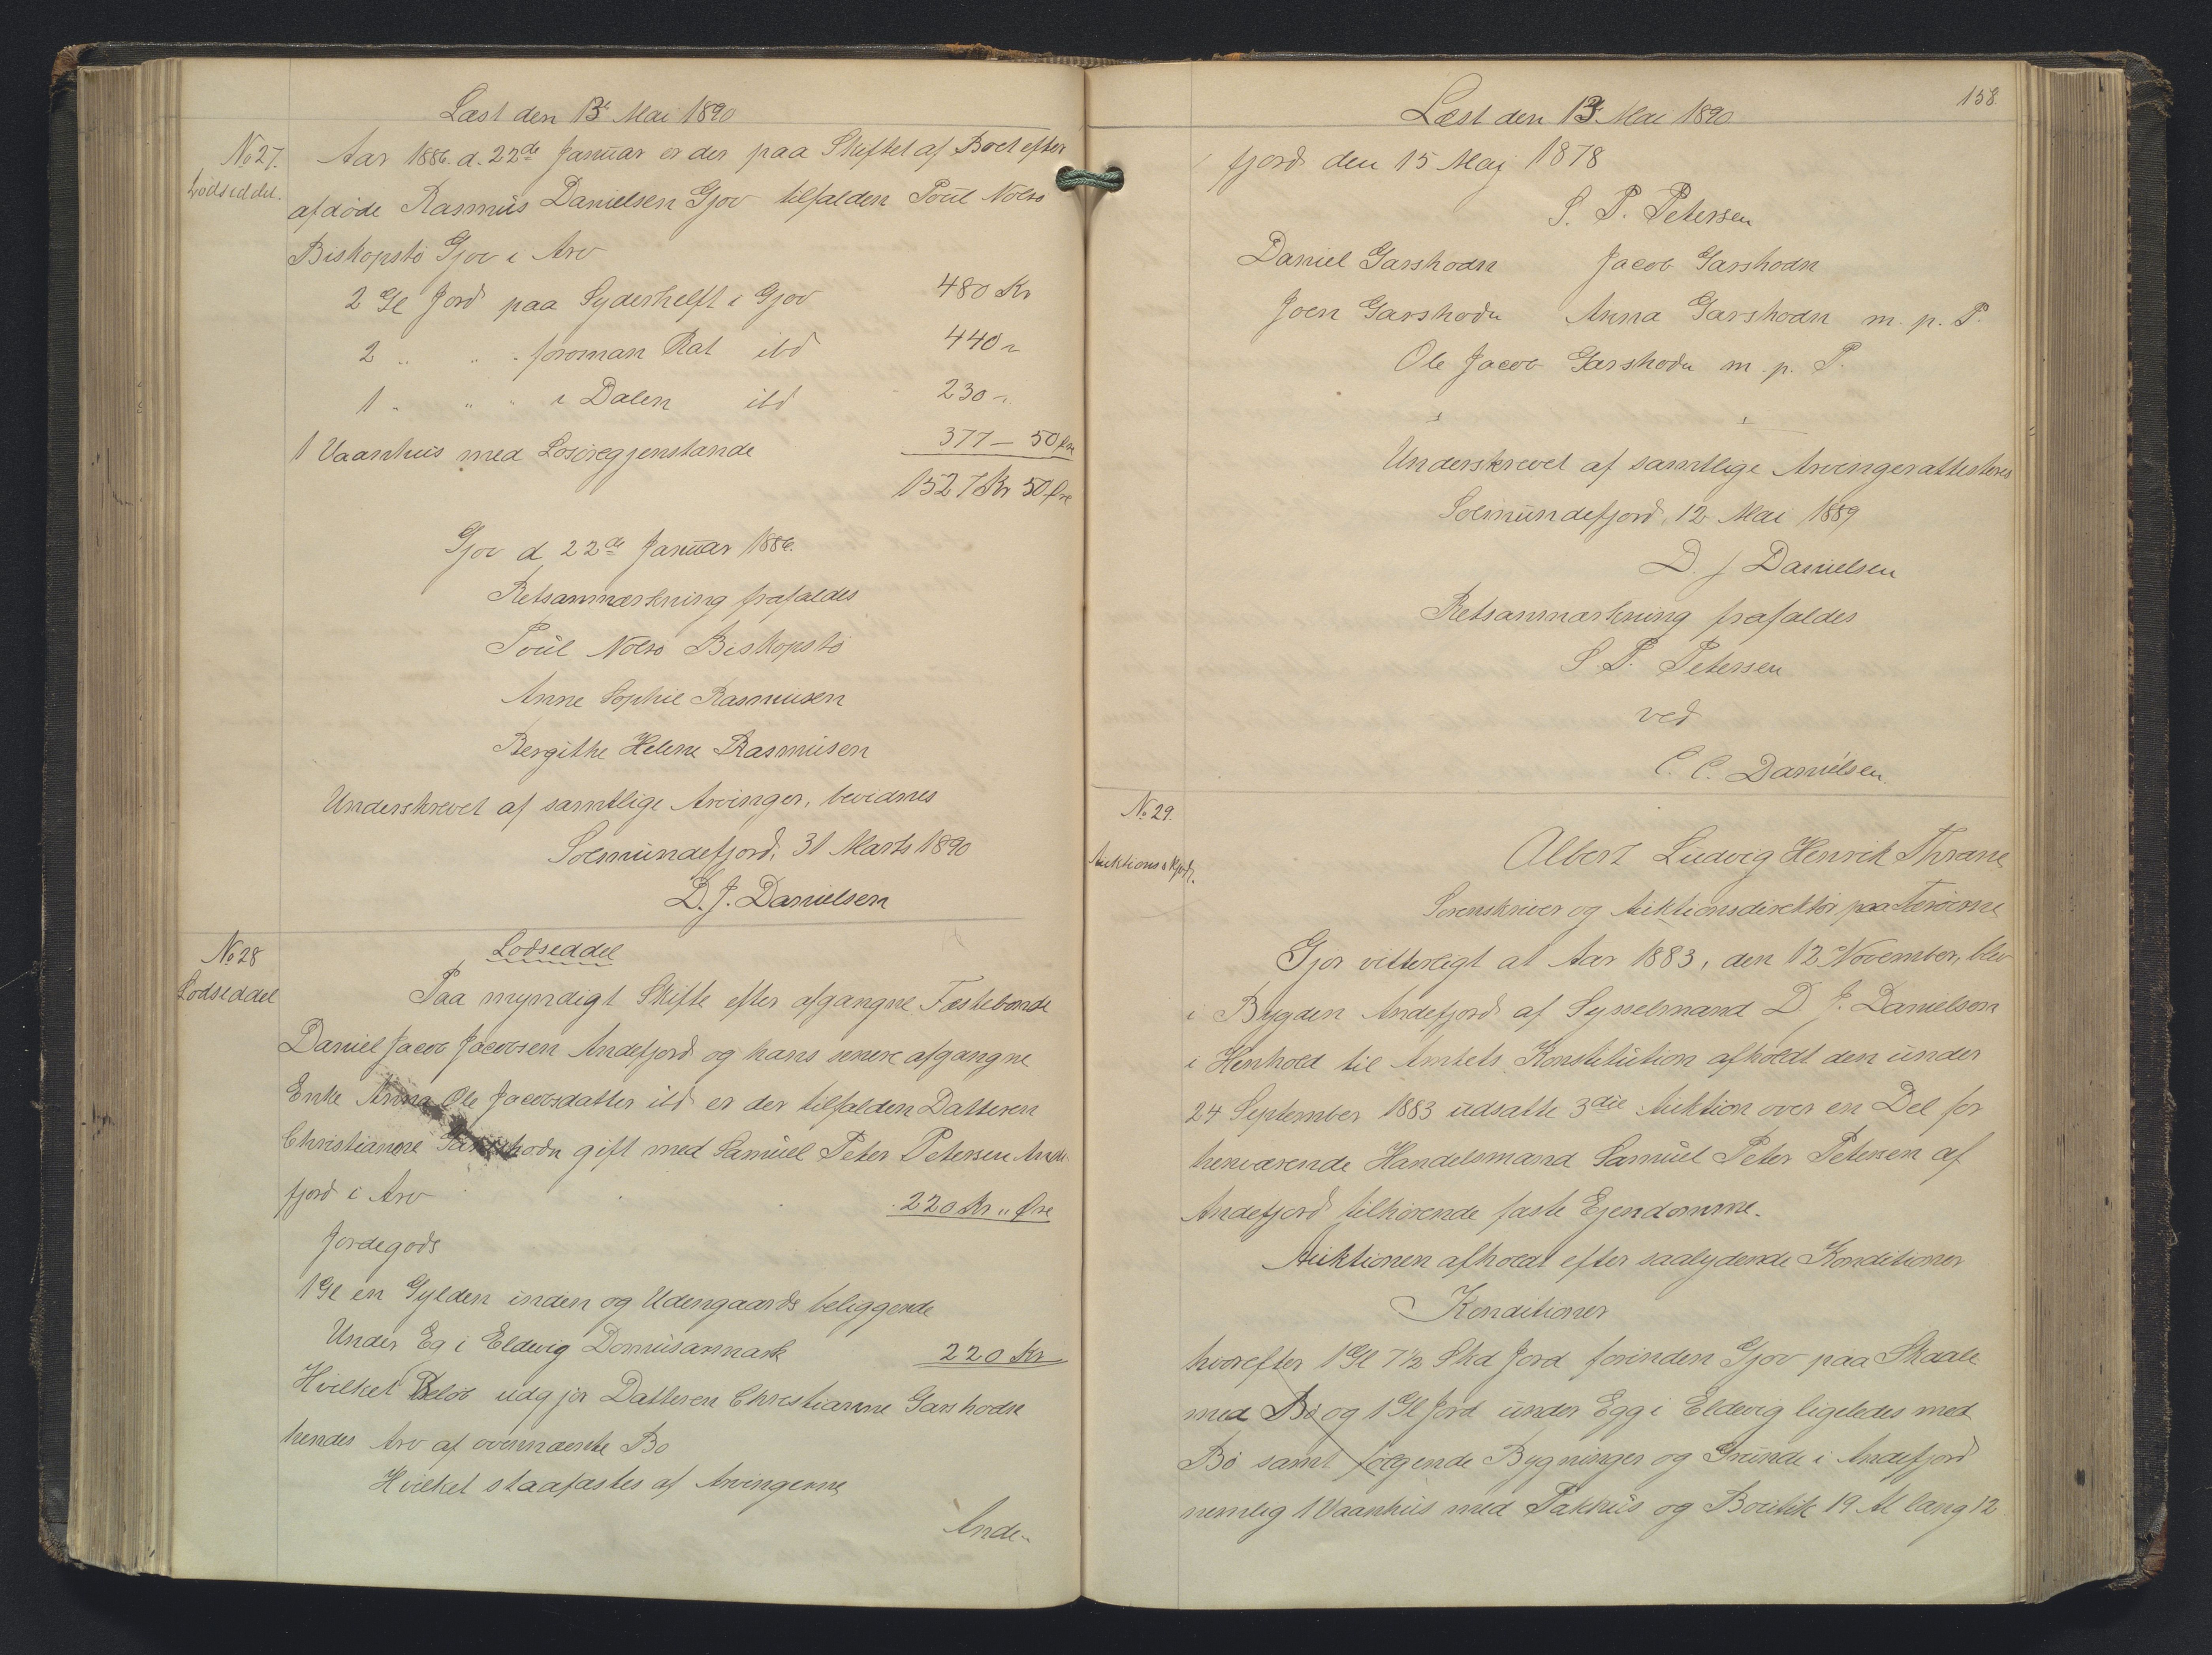 Læst den 13' Mai 1890
No 27. Aar 1886. d. 22de Januar er der paa Skiftet af Boet efter
Lodseddel. afdøde Rasmus Danielsen Gjov tilfalden Poul Nolsø
Bishopstø Gjov i Arv
2 Gl Jord paa Syderhelft i Gjov 480 Kr
2 " " " foroman Rat ibd 440 "
1 " " " i Dalen ibd 230 "
1 Vaanhus med Losøregjenstande 377 — 50 Øre
1527 Kr 50 Øre
Gjov d 22de Januar 1886.
Retsanmærkning frafaldes
Poul Nolsø Bishopstø
Anne Sophie Rasmusen
Bergithe Helene Rasmusen
Underskrevet af samtlige Arvinger, bevidnes
Solmundefjord, 31 Marts 1890
D. J. Danielsen
No 28 Lodseddel
Lodseddel Paa myndigt Skifte efter afgangne Fæstebonde
Daniel Jacob Jacobsen Andefjord og hans senere afgangne
Enke Anna Ole Jacobsdatter ibd er der tilfalden Datteren
Christianne Garshodn gift med Samuel Peter Petersen Ande
fjord i Arv 220 Kr " Øre
Jordegods
1 Gl en Gylden inden og Udengaards beliggende
Under Eg i Eldevig Domusanmark 220 Kr
Hvilket Beløb udgjør Datteren Christianne Garshodn
hendes Arv af ovennævnte Bo
Hvilket staafæstes af Arvingerne
Ande-
158
Læst den 13' Mai 1890
fjord den 15 Maj 1878
S. P. Petersen
Daniel Garshodn Jacob Garshodn
Joen Garshodn Anna Garshodn m. p. P.
Ole Jacob Garshodn m. p. P.
Underskrevet af samtlige Arvinger attesteres
Solmundefjord, 12 Mai 1889
D. J Danielsen
Retsanmærkning frafaldes
S. P. Petersen
ved
C. C. Danielsen
No 29.
Auktionsskjøde. Albert Ludvig Henrik Thrane
Sorenskriver og Auktionsdirektør paa Færøerne
Gjør vitterligt at Aar 1883, den 12 November, blev
i Bygden Andefjord af Sysselmand D. J. Danielsen
i Henhold til Amtets Konstitution afholdt den under
24 September 1883 udsatte 3die Auktion over en Del for
henværende Handelsmand Samuel Peter Petersen af
Andefjord tilhørende faste Ejendomme.
Auktionen afholdt efter saalydende Konditioner
Konditioner
hvorefter 1 Gl 7½ Skd Jord forinden Gjov paa Skaale
med Bø og 1 Gl Jord under Egg i Eldevig ligeledes med
Bø samt følgende Bygninger og Grunde i Andefjord
nemlig 1 Vaanhus med Pakhus og Boutik 19 Al lang 12